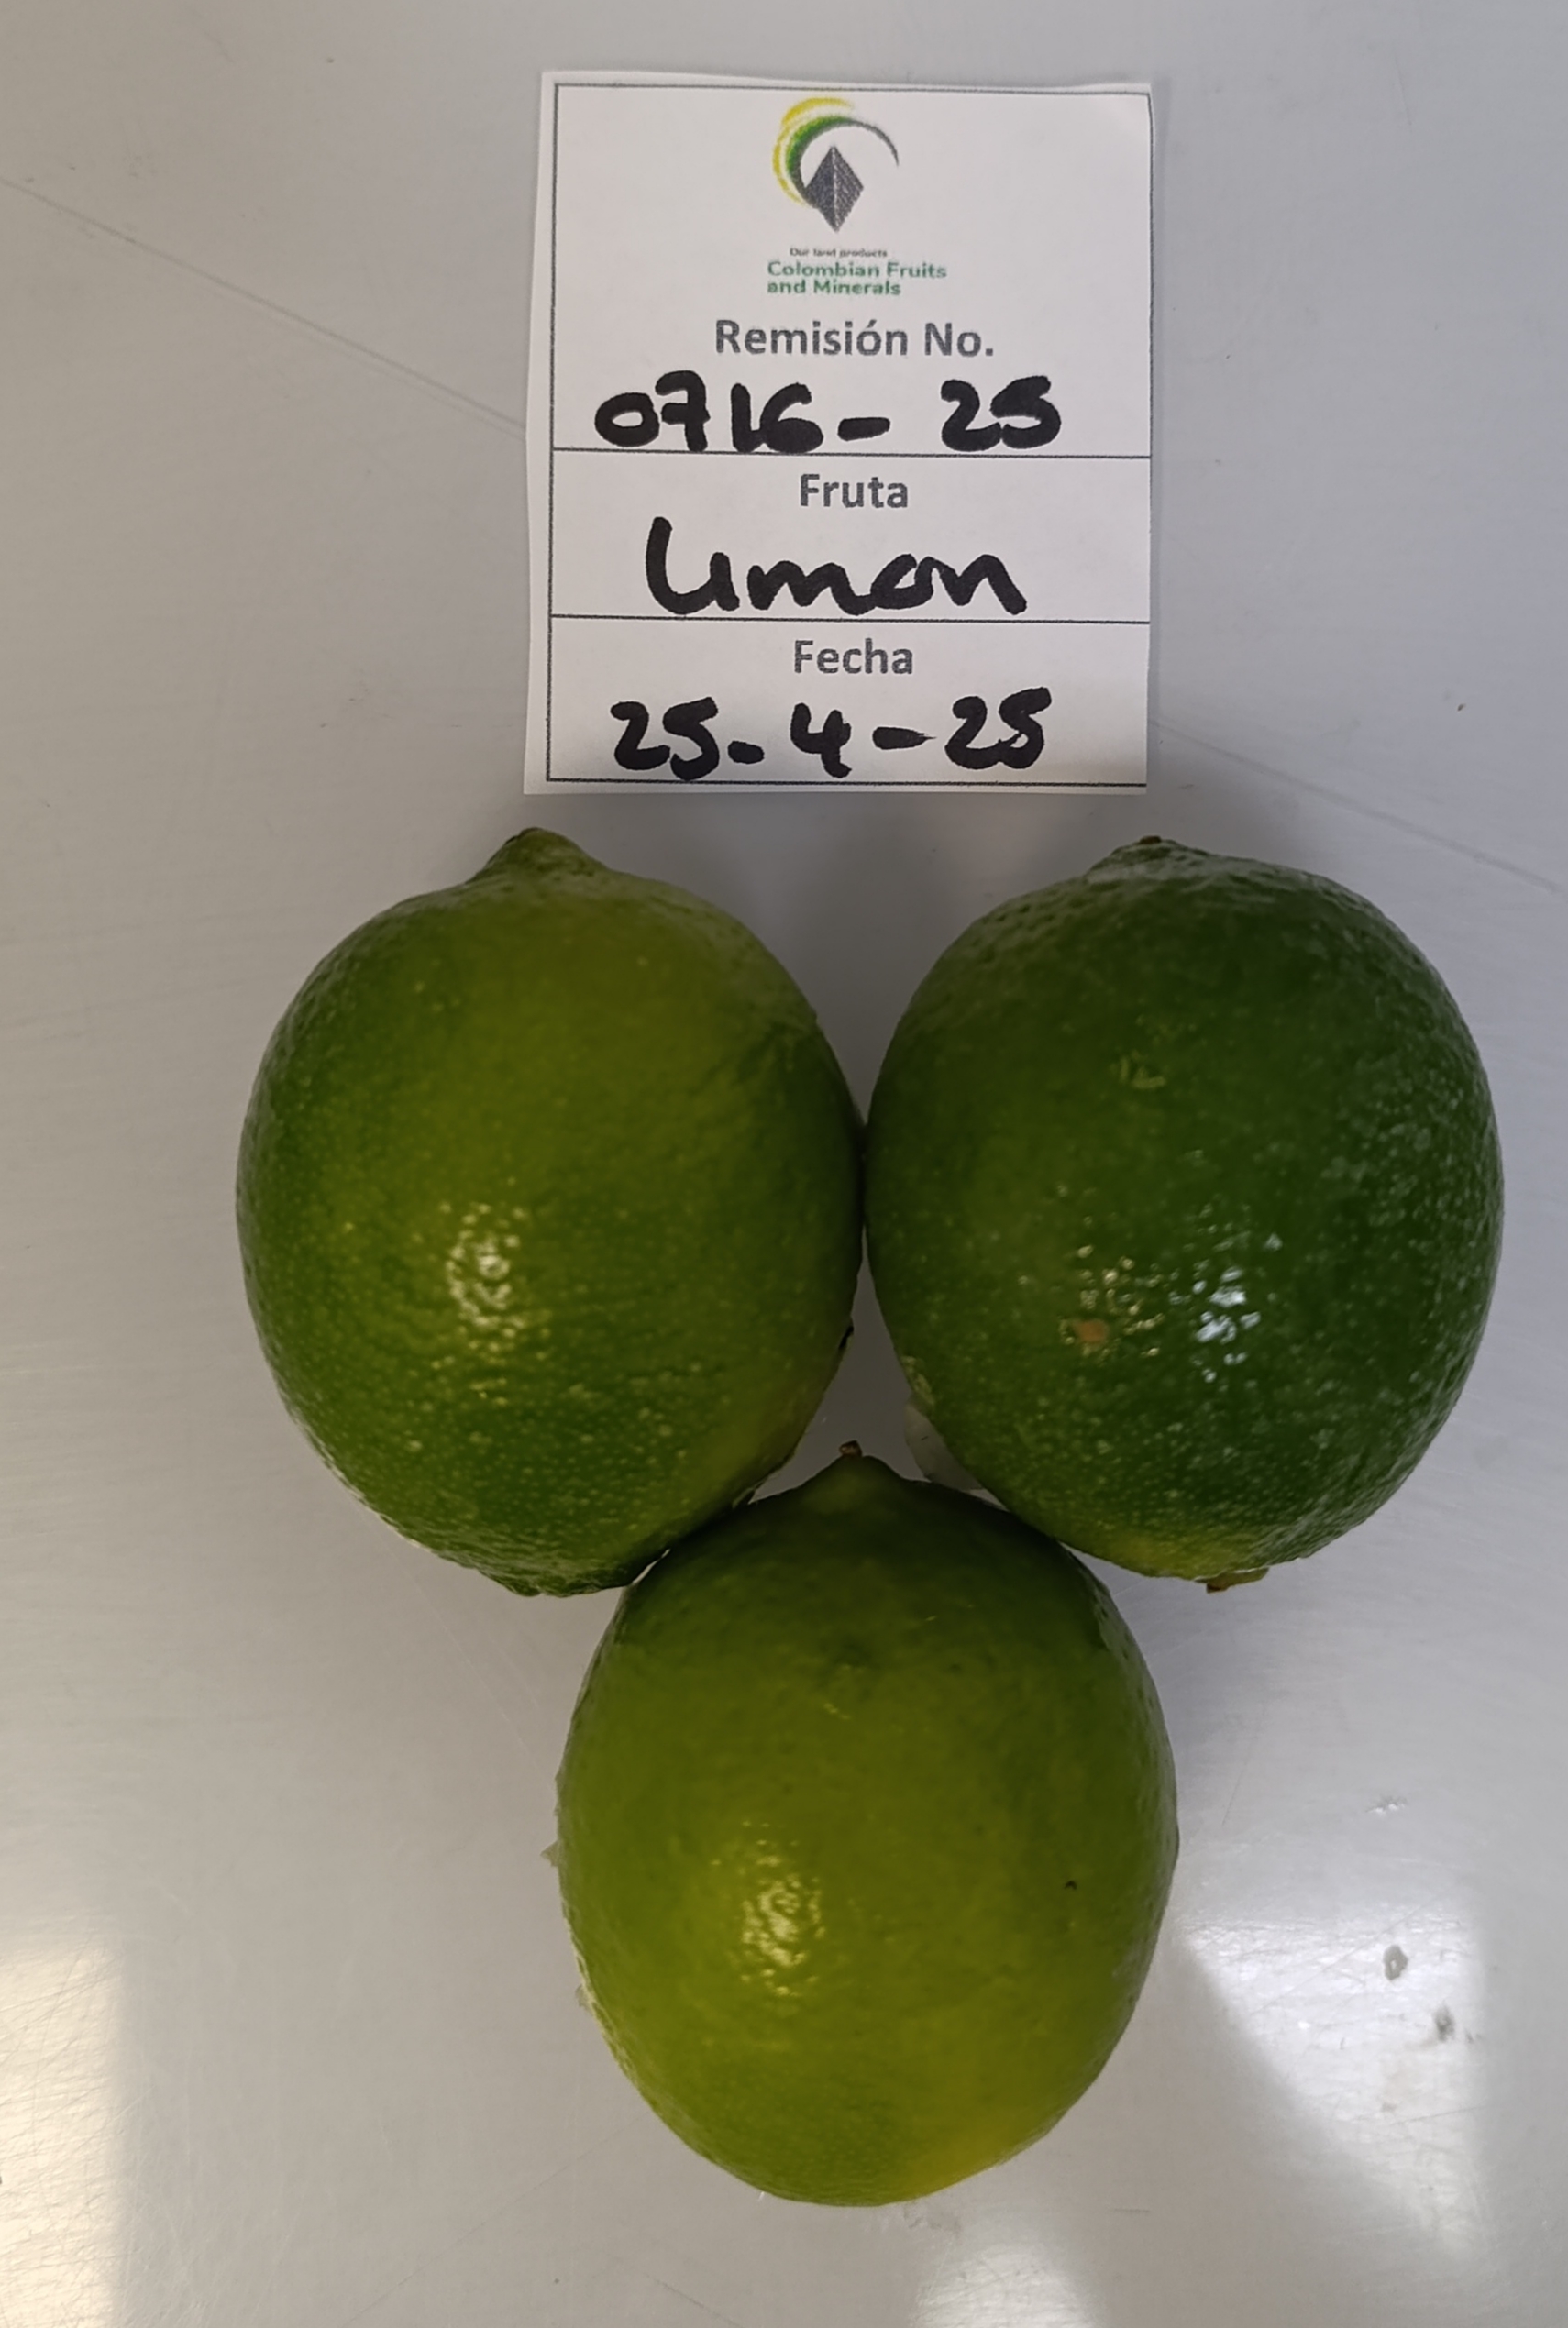 Our land products
Colombian Fruits
and Minerals
Remisión No.
0716- 25
Fruta
Limon
Fecha
25-4-25